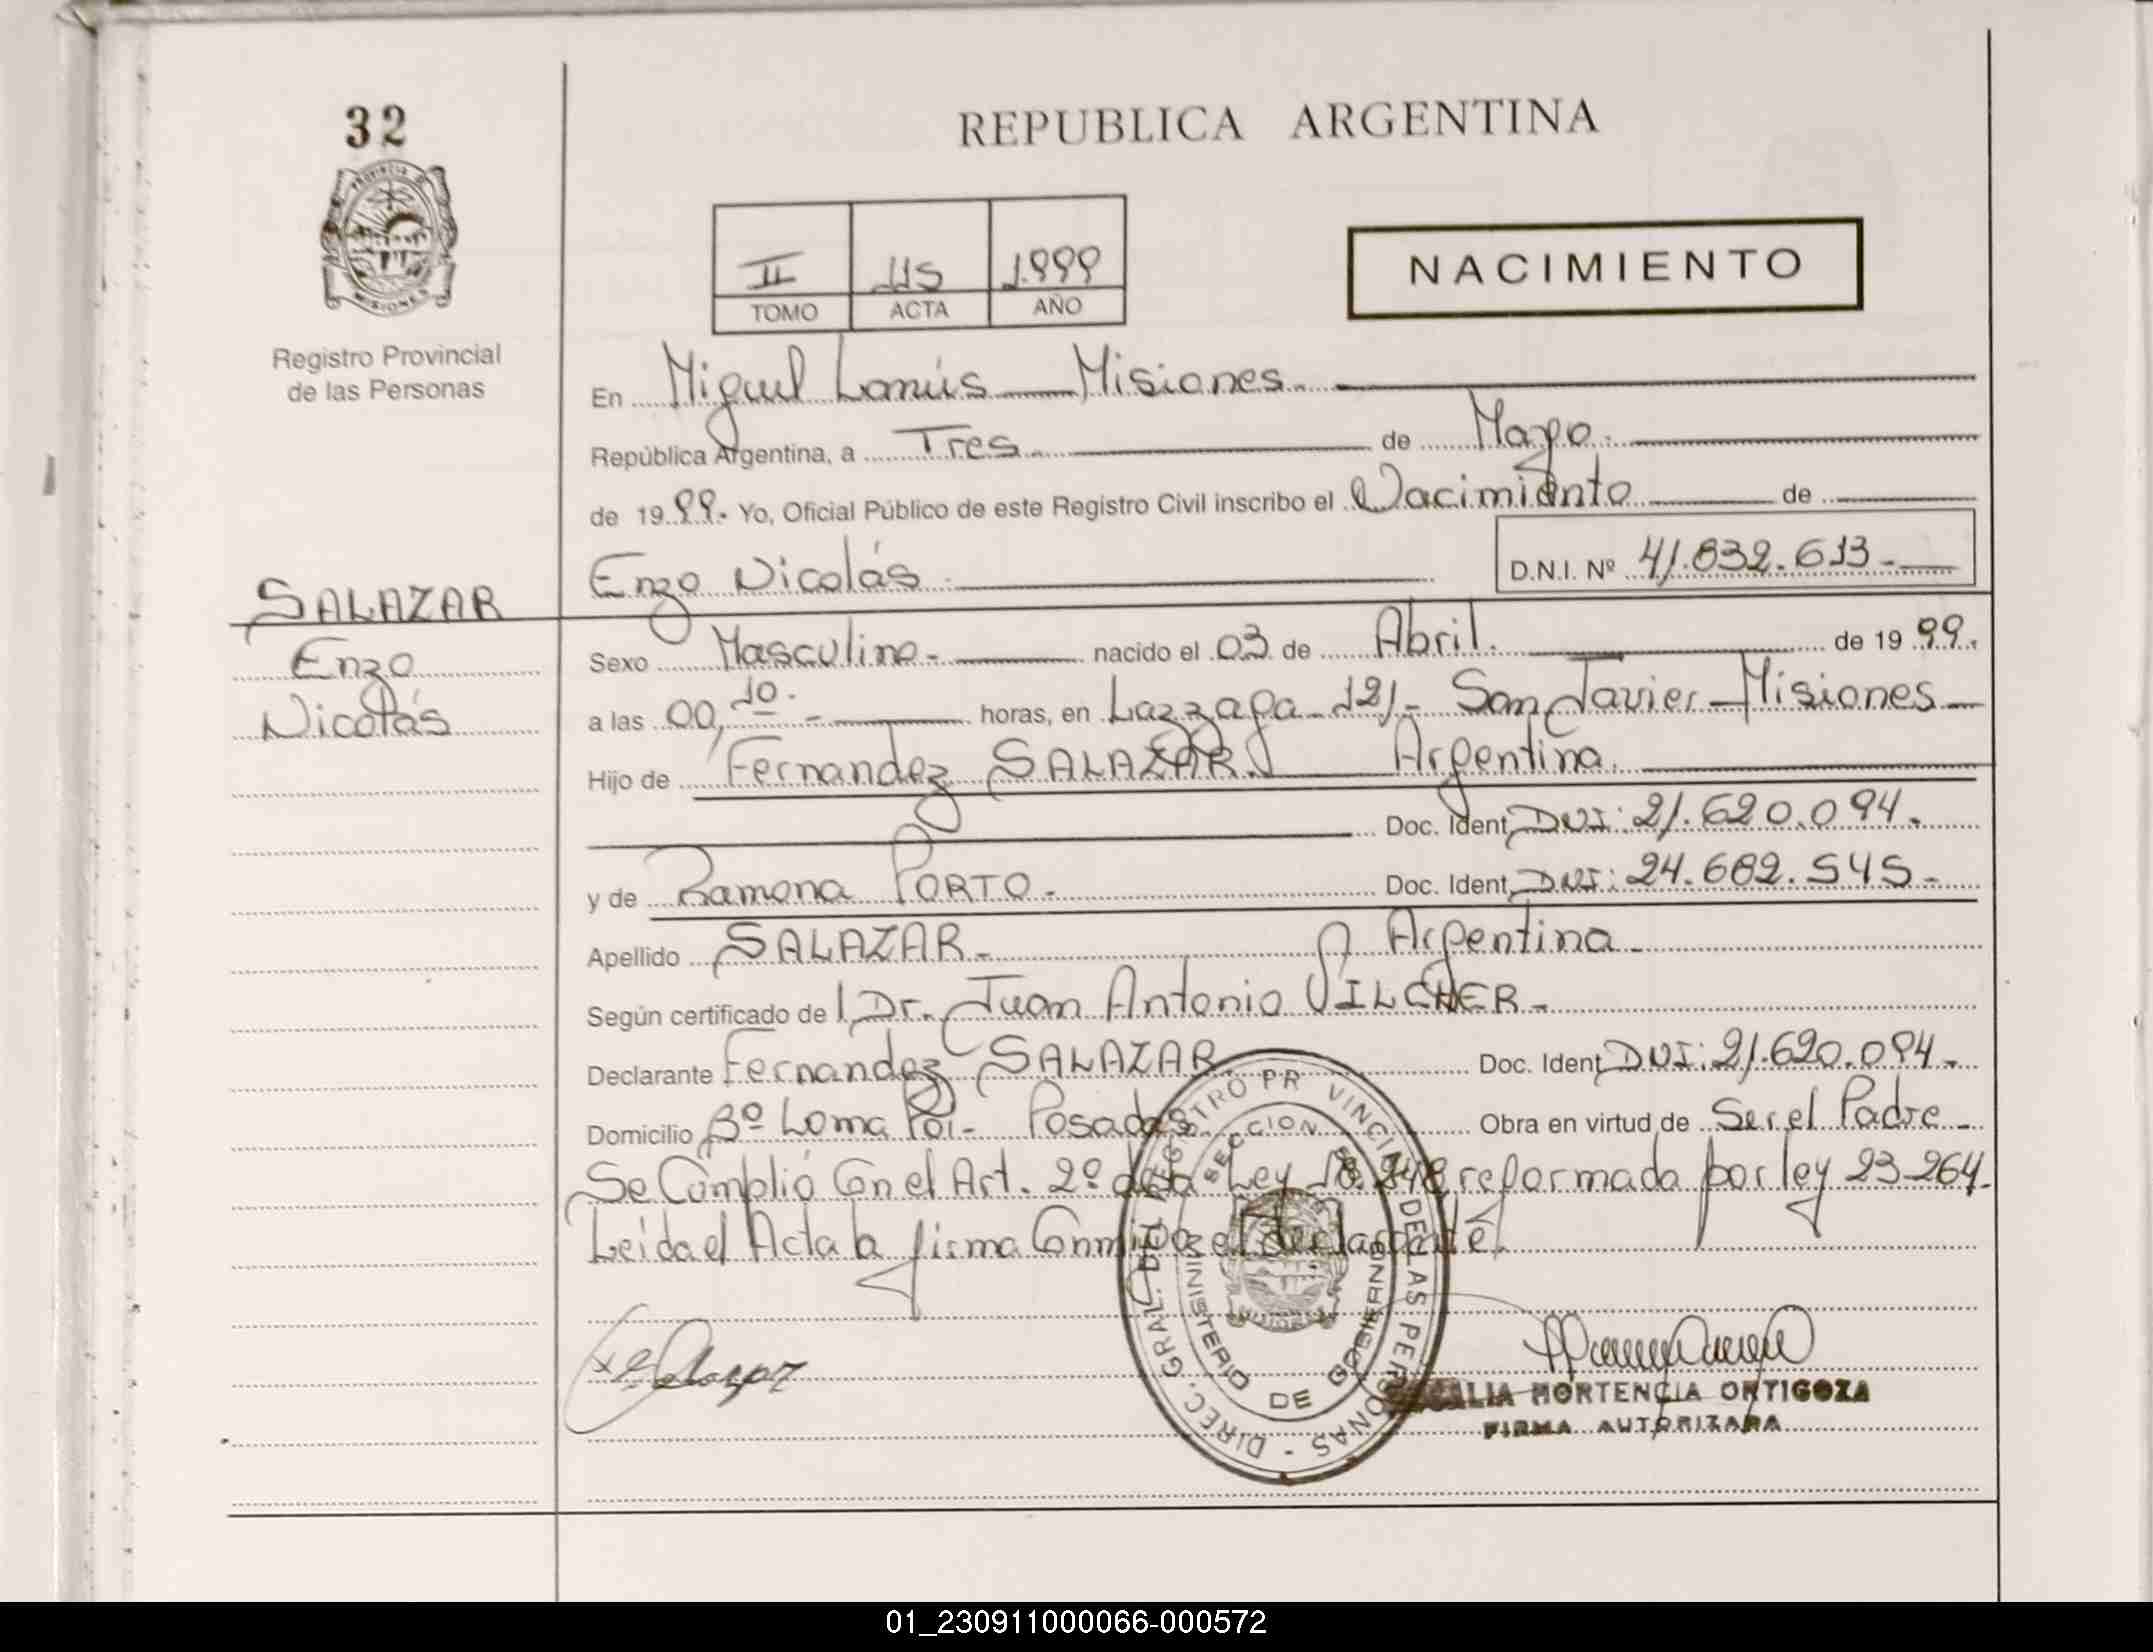 32
REPUBLICA ARGENTINA
PROVINCIA DE
MISIONES
Registro Provincial
de las Personas
II 115 1.999
TOMO ACTA AÑO
NACIMIENTO
En Miguel Lanús - Misiones.
República Argentina, a Tres. de Mayo.
de 1999. Yo, Oficial Público de este Registro Civil inscribo el Nacimiento de
Enzo Nicolás. D.N.I. Nº 41.832.613-
SALAZAR
Enzo
Nicolás
Sexo Masculino- nacido el 03 de Abril. de 1999.
a las 00,10.- horas, en Lazzaga 121- San Javier - Misiones -
Hijo de Fernandez SALAZAR. Argentina.
Doc. Ident. DNI: 21.620.094.
y de Ramona PORTO. Doc. Ident. DNI: 24.682.545-
Apellido SALAZAR- Argentina-
Según certificado de l Dr. Juan Antonio VILCHER-
Declarante Fernandez SALAZAR. Doc. Ident. DNI: 21.620.094.
Domicilio Bº Loma Poi- Posadas. Obra en virtud de Ser el Padre-
Se Cumplió Con el Art. 2º de la Ley 18.248, reformada por ley 23.264.
Leida el Acta la firma Conmigo el declarante.
DIREC. GRAL. DEL REGISTRO PR VINCIAL DE LAS PERSONAS -
SECCION
MINISTERIO DE GOBIERNO
HORTENCIA ORTIGOZA
FIRMA AUTORIZADA
01_230911000066-000572